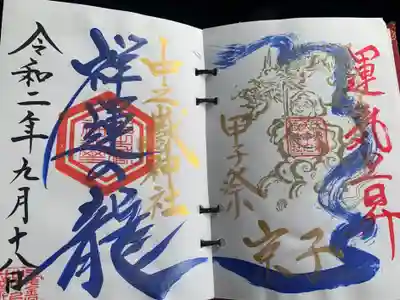 運気上昇
甲子祭
庚子
中之嶽神社
祥運の龍
令和二年九月十八日